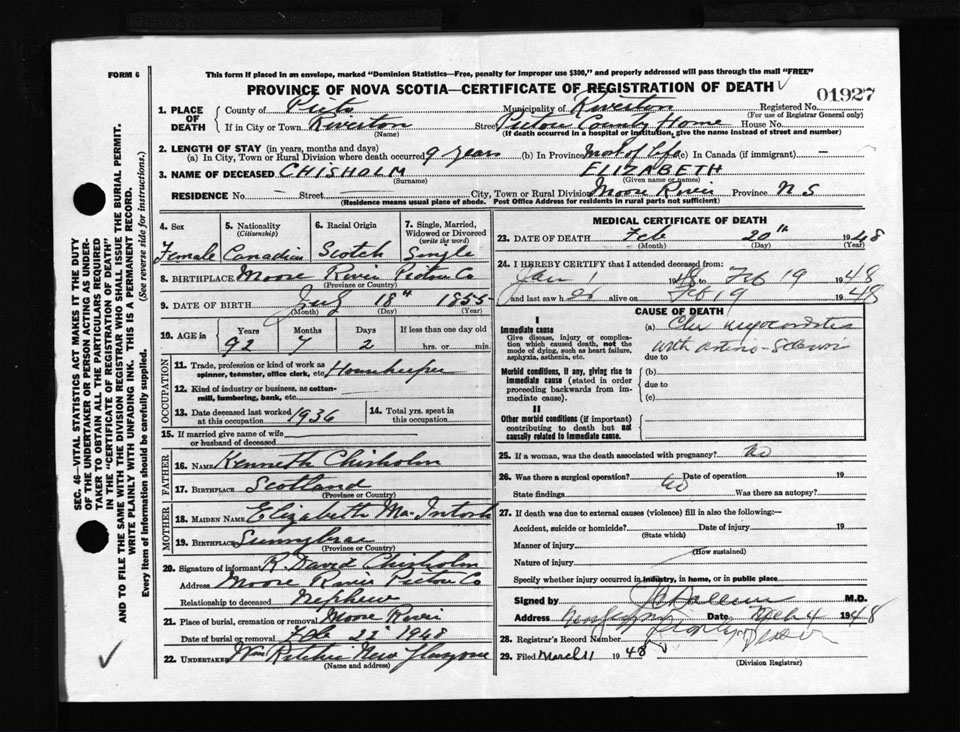 FORM 6
This form if placed in an envelope, marked "Dominion Statistics—Free, penalty for improper use $300," and properly addressed will pass through the mail "FREE"
PROVINCE OF NOVA SCOTIA—CERTIFICATE OF REGISTRATION OF DEATH
01927
1. PLACE OF DEATH
County of Pictou Municipality of Riverton Registered No.
(For use of Registrar General only)
If in City or Town Riverton Street Pictou County Home House No.
(Name) (If death occurred in a hospital or institution, give the name instead of street and number)
2. LENGTH OF STAY (in years, months and days)
(a) In City, Town or Rural Division where death occurred 9 years (b) In Province Most of Life (c) In Canada (if immigrant) —
3. NAME OF DECEASED CHISHOLM ELIZABETH
(Surname) (Given name or names)
RESIDENCE No. – Street City, Town or Rural Division Moose River Province N S
(Residence means usual place of abode. Post Office Address for residents in rural parts not sufficient)
4. Sex 5. Nationality (Citizenship) 6. Racial Origin 7. Single, Married, Widowed or Divorced (write the word)
Female Canadian Scotch Single
8. BIRTHPLACE Moose River Pictou Co
9. DATE OF BIRTH July 18th 1855
(Month) (Day) (Year)
10. AGE in Years Months Days If less than one day old
92 7 2 hrs. or min.
OCCUPATION
11. Trade, profession or kind of work as spinner, teamster, office clerk, etc. Housekeeper
12. Kind of industry or business, as cotton-mill, lumbering, bank, etc.
13. Date deceased last worked at this occupation 1936 14. Total yrs. spent in this occupation
15. If married give name of wife or husband of deceased
FATHER
16. NAME Kenneth Chisholm
17. BIRTHPLACE Scotland
(Province or Country)
MOTHER
18. MAIDEN NAME Elizabeth MacIntosh
19. BIRTHPLACE Sunnybrae
(Province or Country)
20. Signature of informant R. David Chisholm
Address Moose River Pictou Co
Relationship to deceased Nephew
21. Place of burial, cremation or removal Moose River
Date of burial or removal Feb 22 1948
22. UNDERTAKER Wm Ritchie New Glasgow
(Name and address)
MEDICAL CERTIFICATE OF DEATH
23. DATE OF DEATH Feb 20th 1948
(Month) (Day) (Year)
24. I HEREBY CERTIFY that I attended deceased from:
Jan 1 1948 to Feb 19 1948
and last saw her alive on Feb 19 1948
CAUSE OF DEATH
I
Immediate cause
Give disease, injury or complication which caused death, not the mode of dying, such as heart failure, asphyxia, asthenia, etc.
(a) Chr myocarditis
with arterio-sclerosis
due to
Morbid conditions, if any, giving rise to immediate cause (stated in order proceeding backwards from immediate cause).
(b)
due to
(c)
II
Other morbid conditions (if important) contributing to death but not causally related to immediate cause.
25. If a woman, was the death associated with pregnancy? No
26. Was there a surgical operation? No Date of operation 19
State findings Was there an autopsy?
27. If death was due to external causes (violence) fill in also the following:—
Accident, suicide or homicide? Date of injury 19
(State which)
Manner of injury
(How sustained)
Nature of injury
Specify whether injury occurred in industry, in home, or in public place
Signed by M.D.
Address Date Mch 4 1948
28. Registrar's Record Number
29. Filed March 11 1948
(Division Registrar)
SEC. 46—VITAL STATISTICS ACT MAKES IT THE DUTY
OF THE UNDERTAKER OR PERSON ACTING AS UNDER-
TAKER TO OBTAIN ALL THE PARTICULARS REQUIRED
IN THE "CERTIFICATE OF REGISTRATION OF DEATH"
AND TO FILE THE SAME WITH THE DIVISION REGISTRAR WHO SHALL ISSUE THE BURIAL PERMIT.
WRITE PLAINLY WITH UNFADING INK. THIS IS A PERMANENT RECORD.
Every item of information should be carefully supplied. (See reverse side for instructions.)